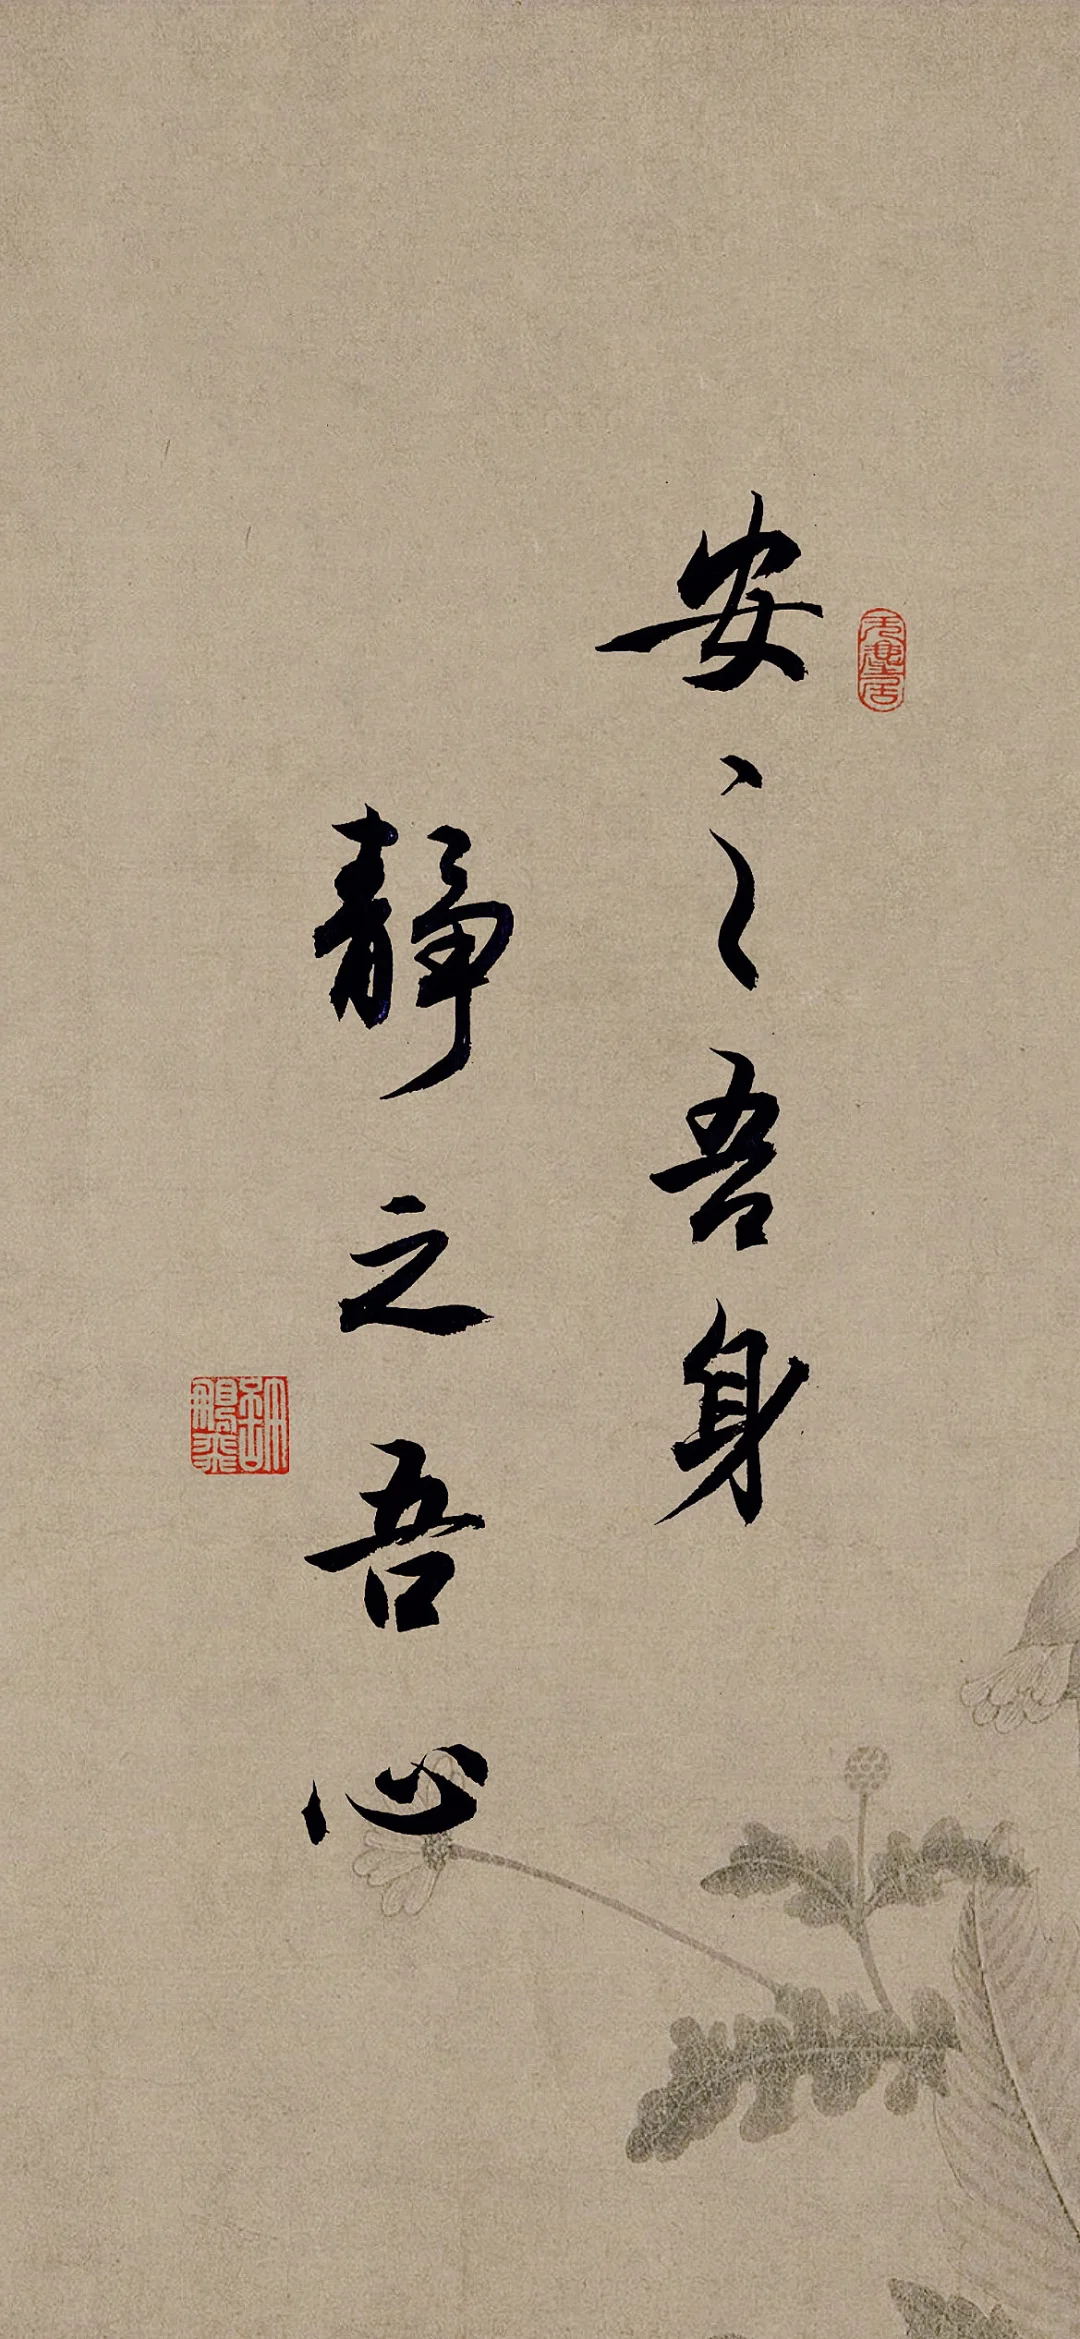 安之吾身
靜之吾心